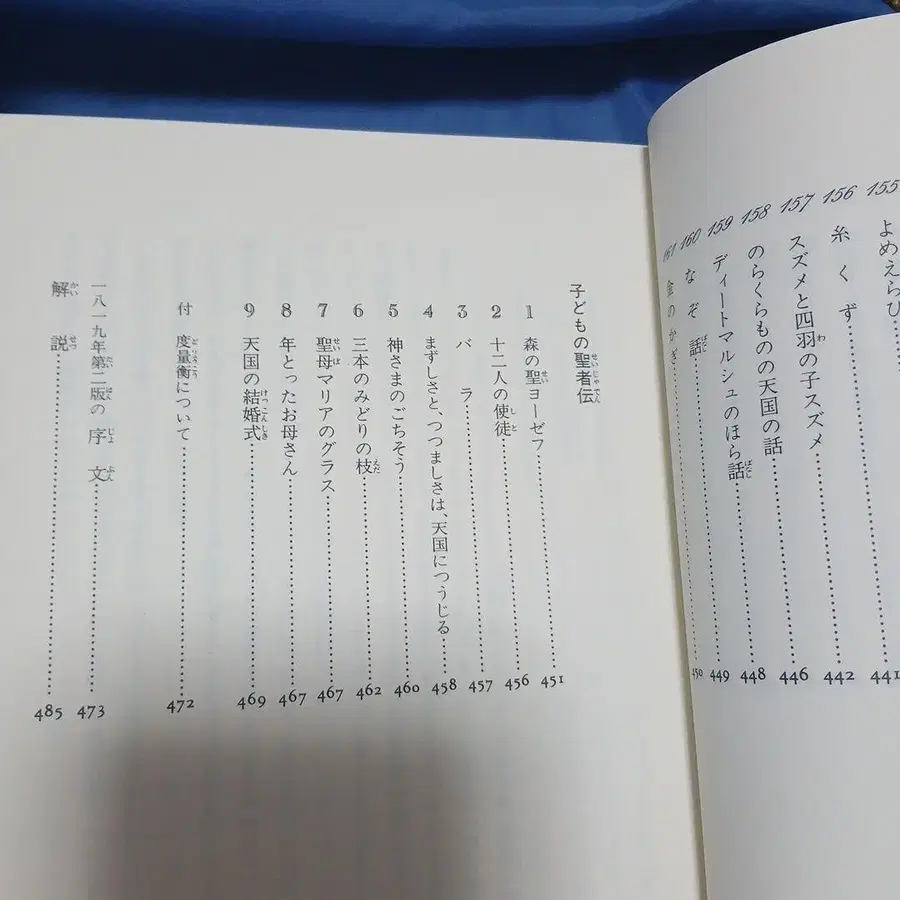 155 よめえらび 441
156 糸くず 442
157 スズメと四羽の子スズメ 446
158 のらくらものの天国の話 448
159 ディートマルシュのほら話 449
160 なぞ話 450
161 金のかぎ
子どもの聖者伝
1 森の聖ヨーゼフ 451
2 十二人の使徒 456
3 バラ 457
4 まずしさと、つつましさは、天国につうじる 458
5 神さまのごちそう 460
6 三本のみどりの枝 462
7 聖母マリアのグラス 467
8 年とったお母さん 467
9 天国の結婚式 469
付 度量衡について 472
一八一九年第二版の序文 473
解説 485